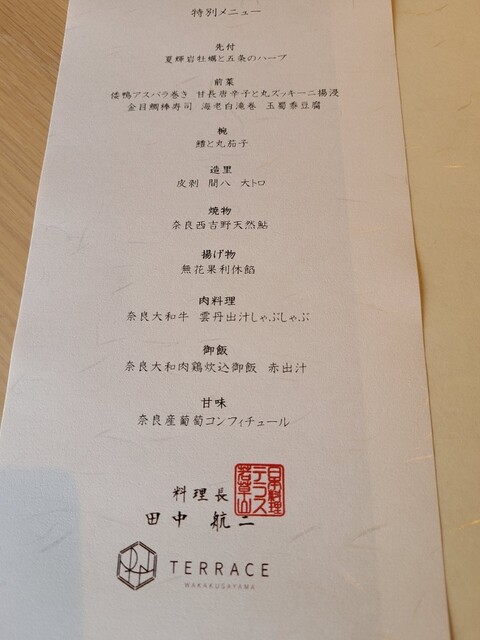 特別メニュー
先付
夏輝岩牡蠣と五条のハーブ
前菜
倭鴨アスパラ巻き 甘長唐辛子と丸ズッキーニ揚浸
金目鯛棒寿司 海老白滝巻 玉蜀黍豆腐
椀
鱧と丸茄子
造里
皮剥 間八 大トロ
焼物
奈良西吉野天然鮎
揚げ物
無花果利休餡
肉料理
奈良大和牛 雲丹出汁しゃぶしゃぶ
御飯
奈良大和肉鶏炊込御飯 赤出汁
甘味
奈良産葡萄コンフィチュール
料理長
田中 航二
日本料理
テラス
若草山
TERRACE
WAKAKUSAYAMA